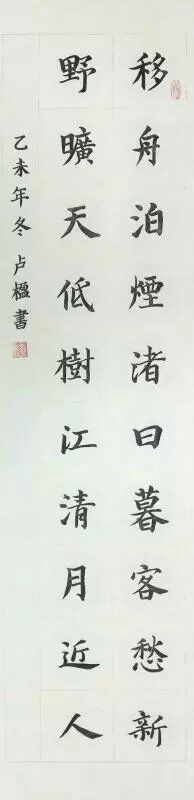 移舟泊煙渚日暮客愁新
野曠天低樹江清月近人
乙未年冬卢楹書